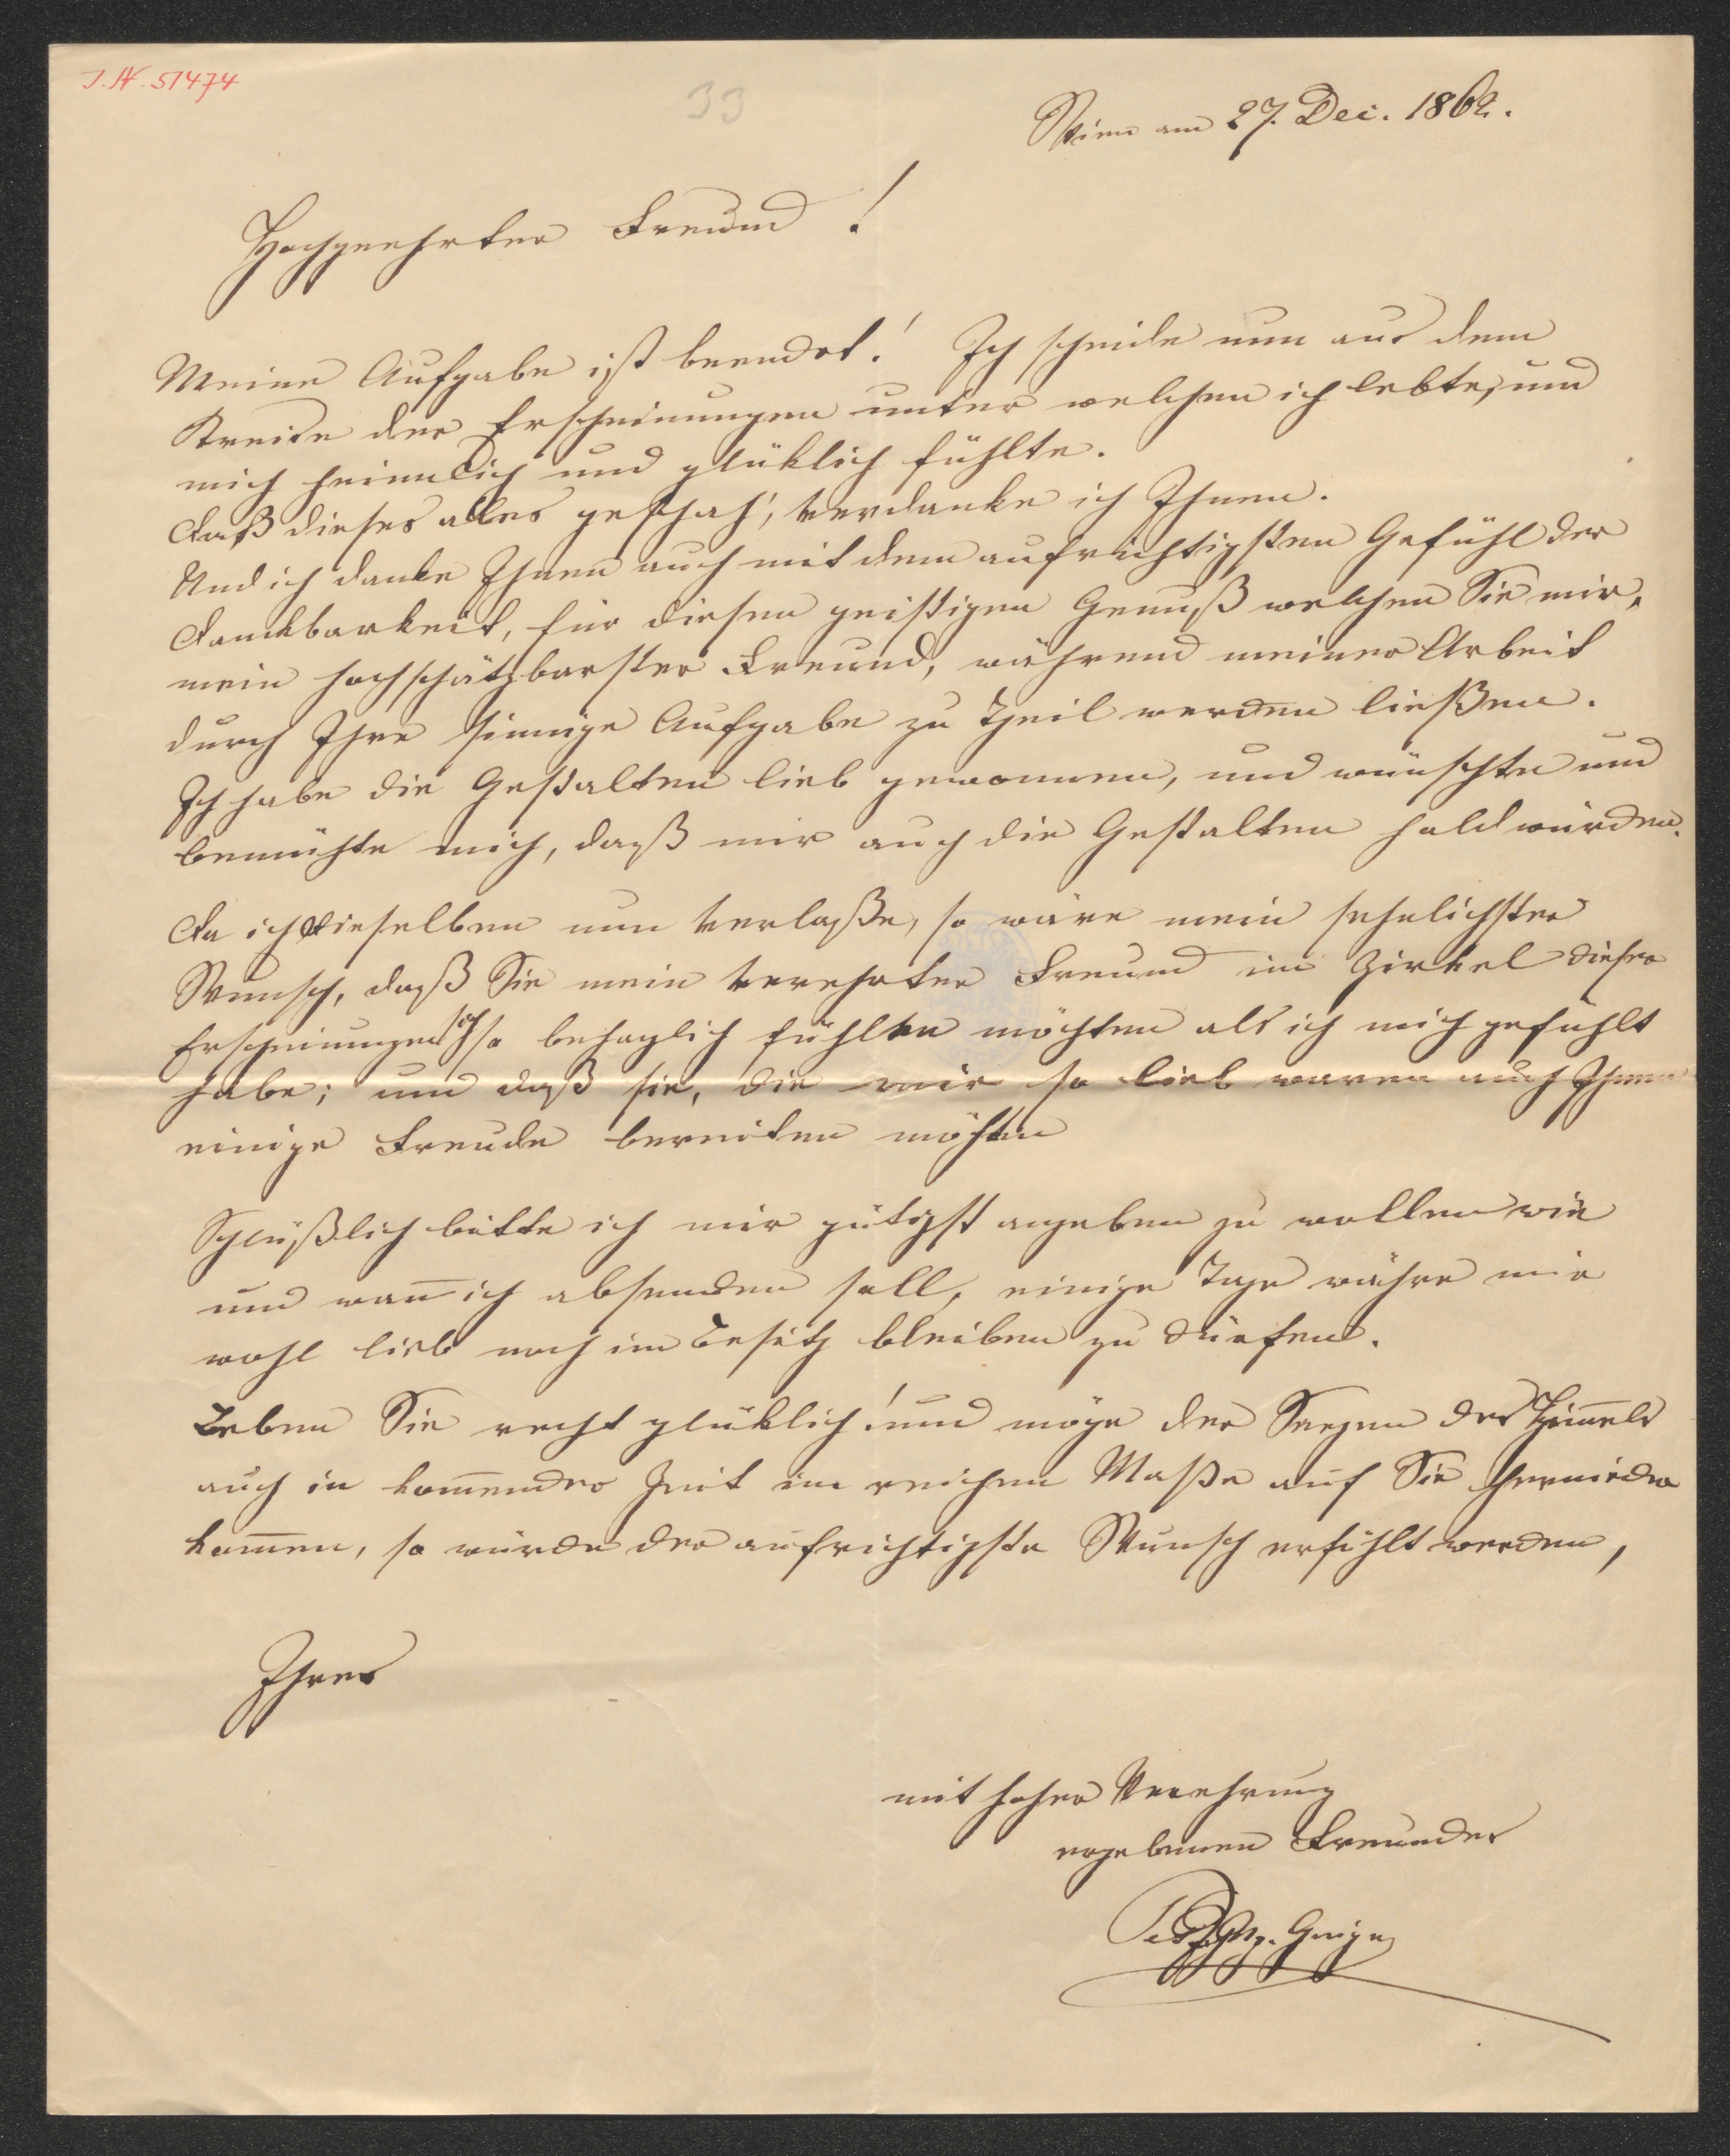 I.N. 51474
33
Wien am 27. Dec. 1862.
Hochgeehrter Freund!
Meine Aufgabe ist beendet! Ich scheide nun aus dem
Kreise der Erscheinungen unter welchen ich lebte, und
mich heimlich und glüklich fühlte.
Daß dieses alles geschah, verdanke ich Ihnen.
Und ich danke Ihnen auch mit dem aufrichtigsten Gefühl der
Dankbarkeit, für diesen geistigen Genuß welchen Sie mir,
mein hochschätzbarster Freund, während meiner Arbeit
durch Ihre sinnige Aufgabe zu Theil werden ließen.
Ich habe die Gestalten lieb gewonnen, und wünschte und
bemühte mich, daß mir auch die Gestalten hold würden.
Da ich dieselben nun verlaße, so wäre mein sehnlichster
Wunsch, daß Sie mein verehrter Freund im Zirkel dieser
Erscheinungen sich so behaglich fühlen möchten als ich mich gefühlt
habe; und daß sie, die mir so lieb waren auch Ihnen
einige Freude bereiten möchten
Schlüßlich bitte ich mir gütigst angeben zu wollen wie
und wan̄ ich absenden soll, einige Tage währe mir
wohl lieb noch im Besitz bleiben zu dürfen.
Leben Sie recht glüklich! und möge der Seegen des Him̄els
auch in kom̄ender Zeit im reichen Maße auf Sie hernieder
kom̄en, so würde der aufrichtigste Wunsch erfühlt werden,
Ihres
mit hoher Verehrung
ergebenen Freundes
Geiger